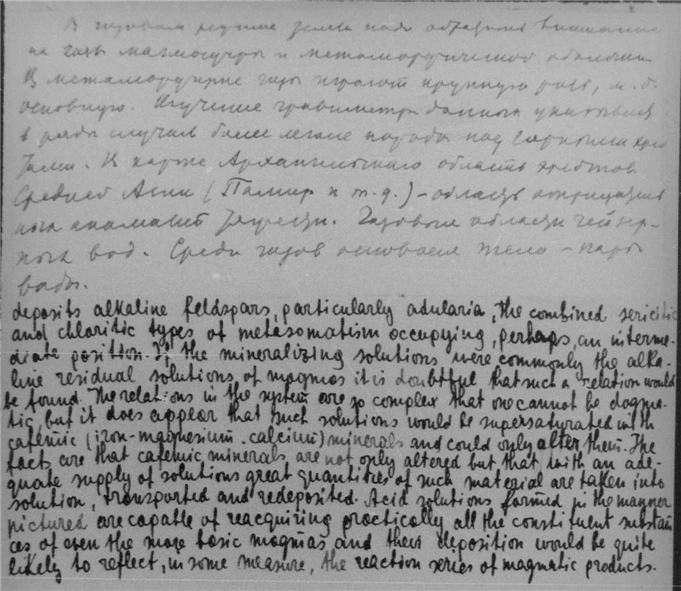 В газовом режиме земли надо обратить внимание
на газы магмосферы и метаморфической оболочки
В метаморфизме газы играют крупную роль, м. б.
основную. Изучение гравиметр. данных указывает
в ряде случаев более легкие породы под
Архангельской область хребтов
Средней Азии (Памир и т. д.) – область
Газовые области
ных вод. Среди газов основное – пары
воды.
deposits alkaline feldspars, particularly adularia, the combined sericitic
and chloritic types of metasomatism occupying, perhaps, an interme-
diate position. If the mineralizing solutions were commonly the alka-
line residual solutions of magmas it is doubtful that such a relation would
be found. The relations in the system are so complex that one cannot be dogma-
tic, but it does appear that such solutions would be supersaturated with
cafemic (iron-magnesium-calcium) minerals and could only alter them. The
facts are that cafemic minerals are not only altered but that with an ade-
quate supply of solutions great quantities of such material are taken into
solution, transported and redeposited. Acid solutions formed in the manner
pictured are capable of reacquiring practically all the constituent substan
ces of even the more basic magmas and their deposition would be quite
likely to reflect, in some measure, the reaction series of magmatic products.